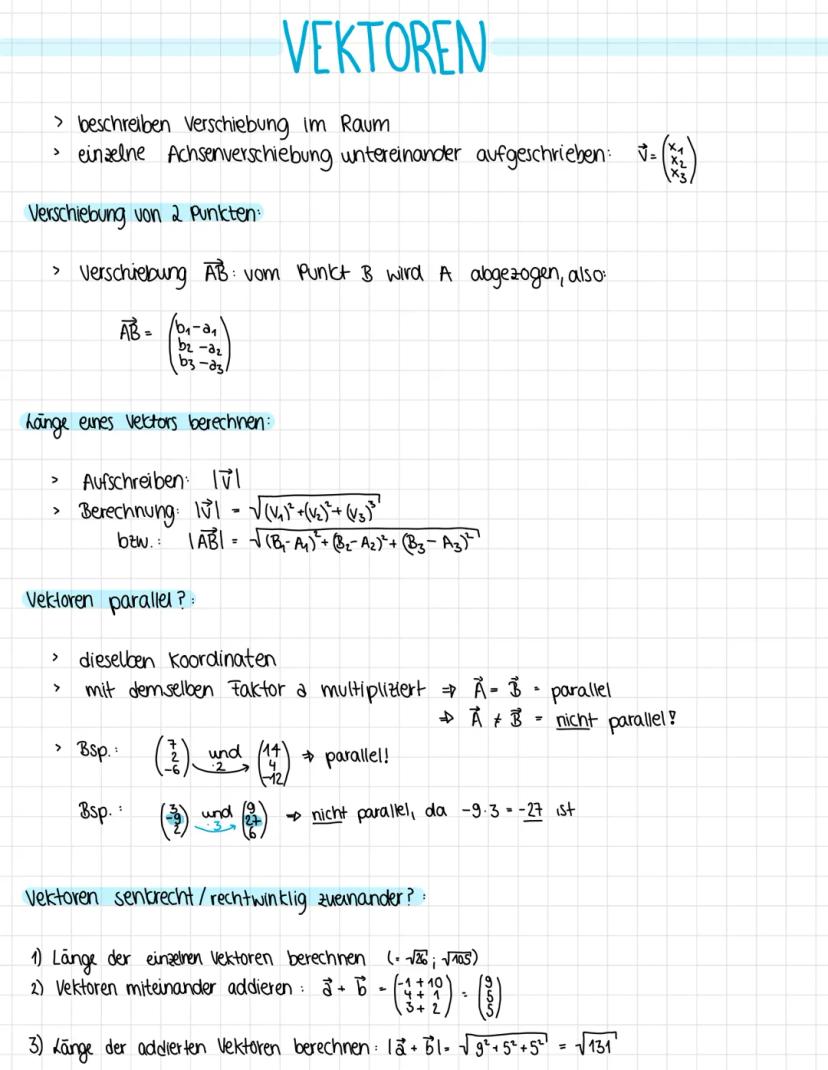 VEKTOREN
> beschreiben Verschiebung im Raum
> einzelne Achsenverschiebung untereinander aufgeschrieben: v⃗ = (x₁ x₂ x₃)
Verschiebung von 2 Punkten:
> Verschiebung A⃗B⃗: vom Punkt B wird A abgezogen, also:
A⃗B⃗ = (b₁-a₁
b₂-a₂
b₃-a₃)
Länge eines Vektors berechnen:
> Aufschreiben: |v⃗|
> Berechnung: |v⃗| = √((v₁)²+(v₂)²+(v₃)³)
bzw.: |A⃗B⃗| = √((B₁-A₁)²+(B₂-A₂)²+(B₃-A₃)²)
Vektoren parallel?:
> dieselben Koordinaten
> mit demselben Faktor a multipliziert ⇒ A⃗ = B⃗ = parallel
⇒ A⃗ ≠ B⃗ = nicht parallel!
> Bsp.: (7 2 -6) und ·2 (14 4 -12) ⇒ parallel!
Bsp.: (3 -9 2) und ·3 (9 27 6) ⇒ nicht parallel, da -9·3 = -27 ist
Vektoren senkrecht/rechtwinklig zueinander?:
1) Länge der einzelnen Vektoren berechnen (= √26 ; √105)
2) Vektoren miteinander addieren: a⃗ + b⃗ = (-1+10 4+1 3+2) = (9 5 5)
3) Länge der addierten Vektoren berechnen: |a⃗ + b⃗| = √(9²+5²+5²) = √131